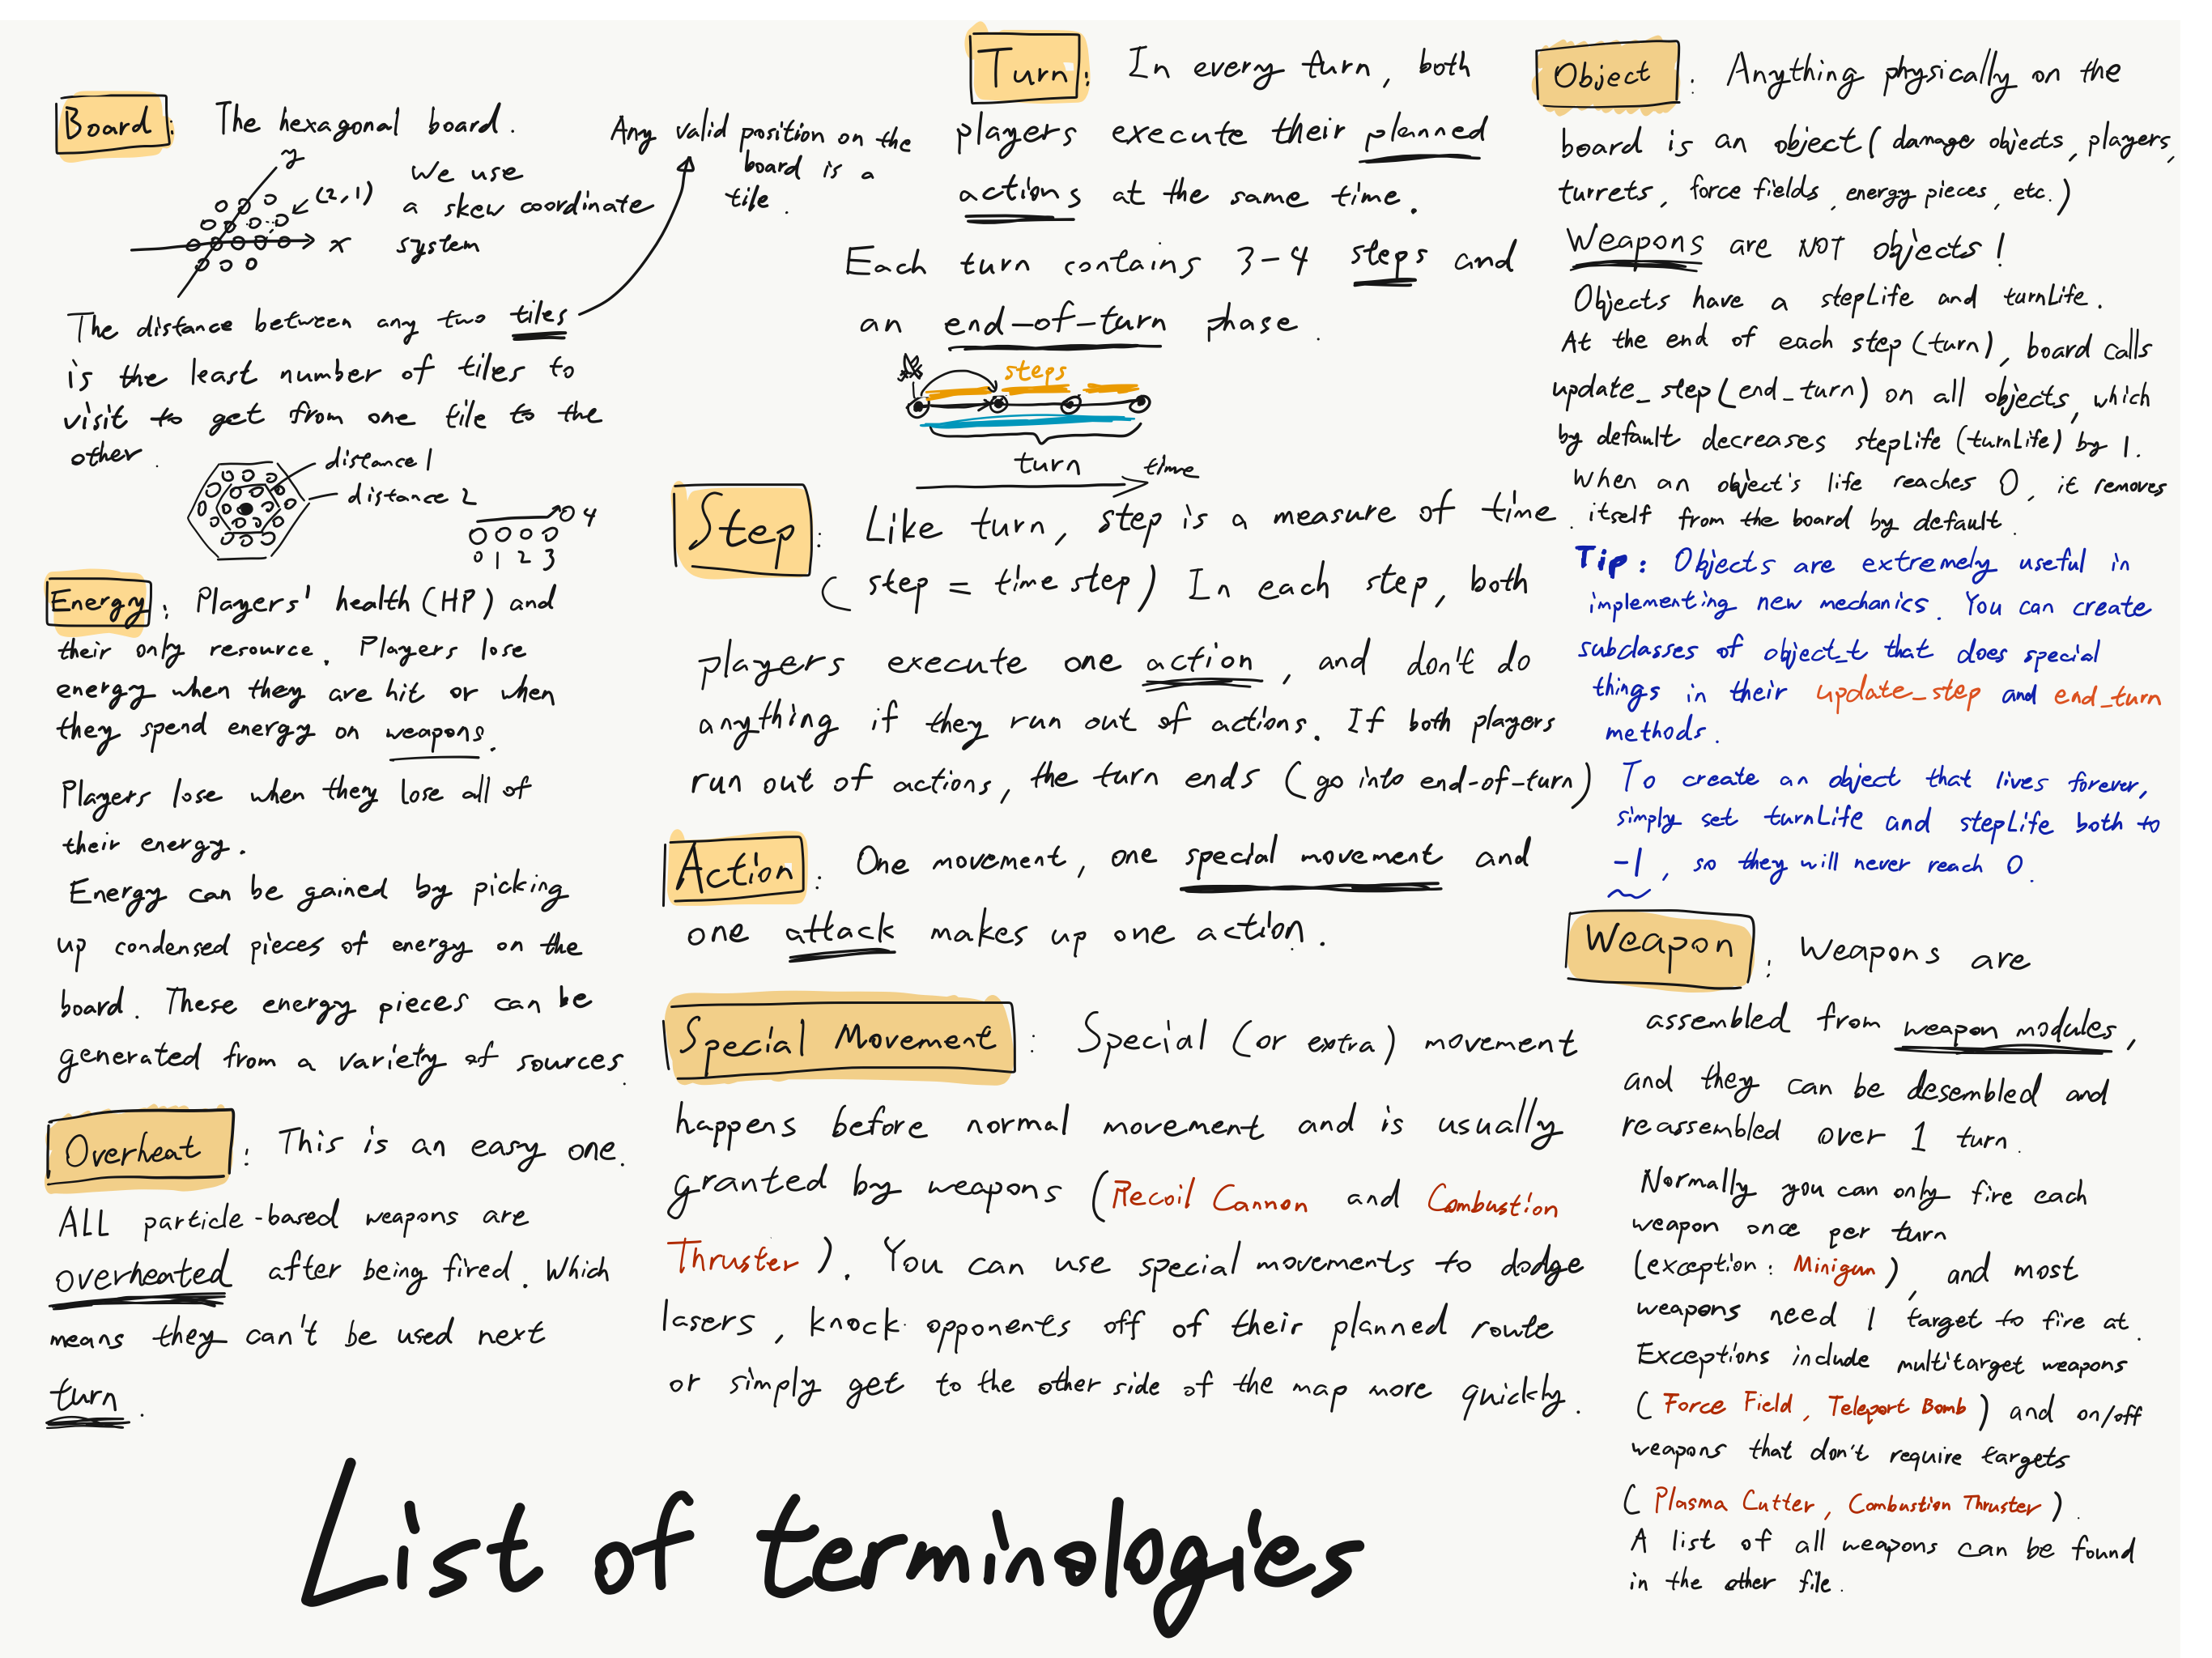 Board: The hexagonal board.
y
(2,1)
x
We use
a skew coordinate
system
Any valid position on the
board is a
tile.
The distance between any two tiles
is the least number of tiles to
visit to get from one tile to the
other.
distance 1
distance 2
4
0 1 2 3
Energy: Players' health (HP) and
their only resource. Players lose
energy when they are hit or when
they spend energy on weapons.
Players lose when they lose all of
their energy.
Energy can be gained by picking
up condensed pieces of energy on the
board. These energy pieces can be
generated from a variety of sources.
Overheat: This is an easy one.
ALL particle-based weapons are
overheated after being fired. Which
means they can't be used next
turn.
Turn: In every turn, both
players execute their planned
actions at the same time.
Each turn contains 3-4 steps and
an end-of-turn phase.
steps
turn
time
Step: Like turn, step is a measure of time.
(step = time step) In each step, both
players execute one action, and don't do
anything if they run out of actions. If both players
run out of actions, the turn ends (go into end-of-turn)
Action: One movement, one special movement and
one attack makes up one action.
Special Movement: Special (or extra) movement
happens before normal movement and is usually
granted by weapons (Recoil Cannon and Combustion
Thruster). You can use special movements to dodge
lasers, knock opponents off of their planned route
or simply get to the other side of the map more quickly.
Object: Anything physically on the
board is an object (damage objects, players,
turrets, force fields, energy pieces, etc.)
Weapons are NOT objects!
Objects have a stepLife and turnLife.
At the end of each step (turn), board calls
update_step (end_turn) on all objects, which
by default decreases stepLife (turnLife) by 1.
When an object's life reaches 0, it removes
itself from the board by default.
Tip: Objects are extremely useful in
implementing new mechanics. You can create
subclasses of object_t that does special
things in their update_step and end_turn
methods.
To create an object that lives forever,
simply set turnLife and stepLife both to
-1, so they will never reach 0.
Weapon: Weapons are
assembled from weapon modules,
and they can be desembled and
reassembled over 1 turn.
Normally you can only fire each
weapon once per turn
(exception: Minigun), and most
weapons need 1 target to fire at.
Exceptions include multitarget weapons
(Force Field, Teleport Bomb) and on/off
weapons that don't require targets
(Plasma Cutter, Combustion Thruster).
A list of all weapons can be found
in the other file.
List of terminologies